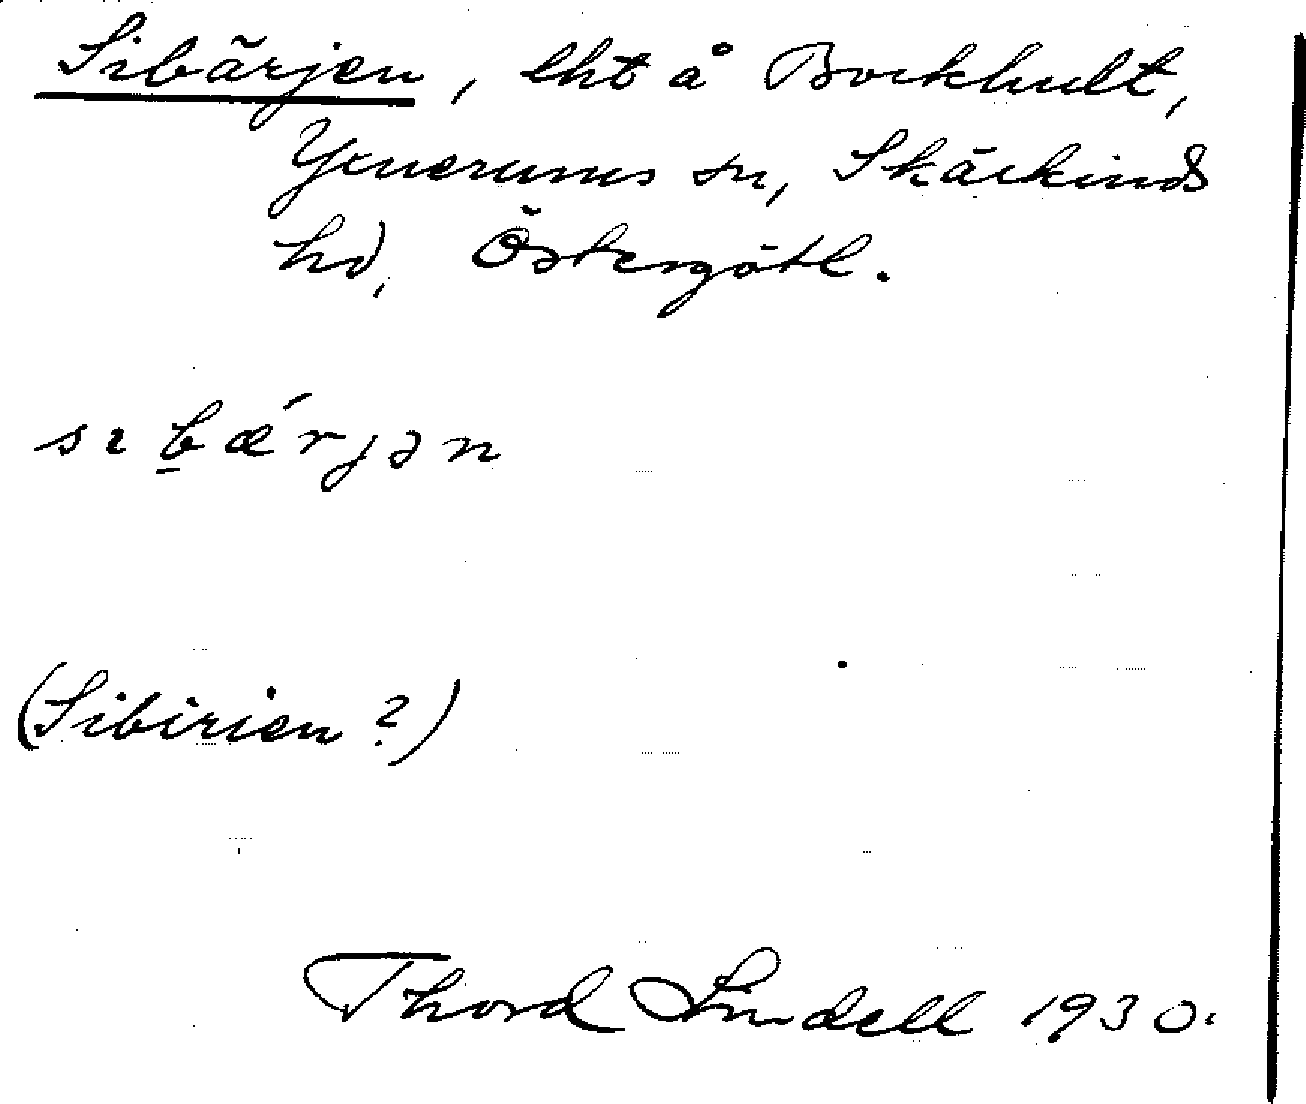 Sibärjen, lht å Bockhult,
Yxnerums sn, Skärkinds
hd, Östergötl.
sı b̠æ´rjən
(Sibirien?)
Thord Lindell 1930.